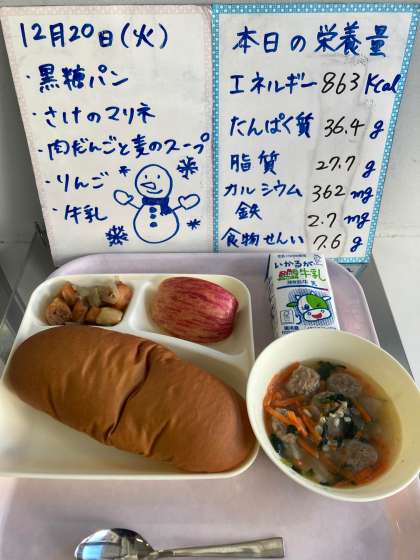 12月20日(火)
・黒糖パン
・さけのマリネ
・肉だんごと麦のスープ
・りんご
・牛乳
本日の栄養量
エネルギー 863 Kcal
たんぱく質 36.4 g
脂質 27.7 g
カルシウム 362 mg
鉄 2.7 mg
食物せんい 7.6 g
いかるが
牛乳